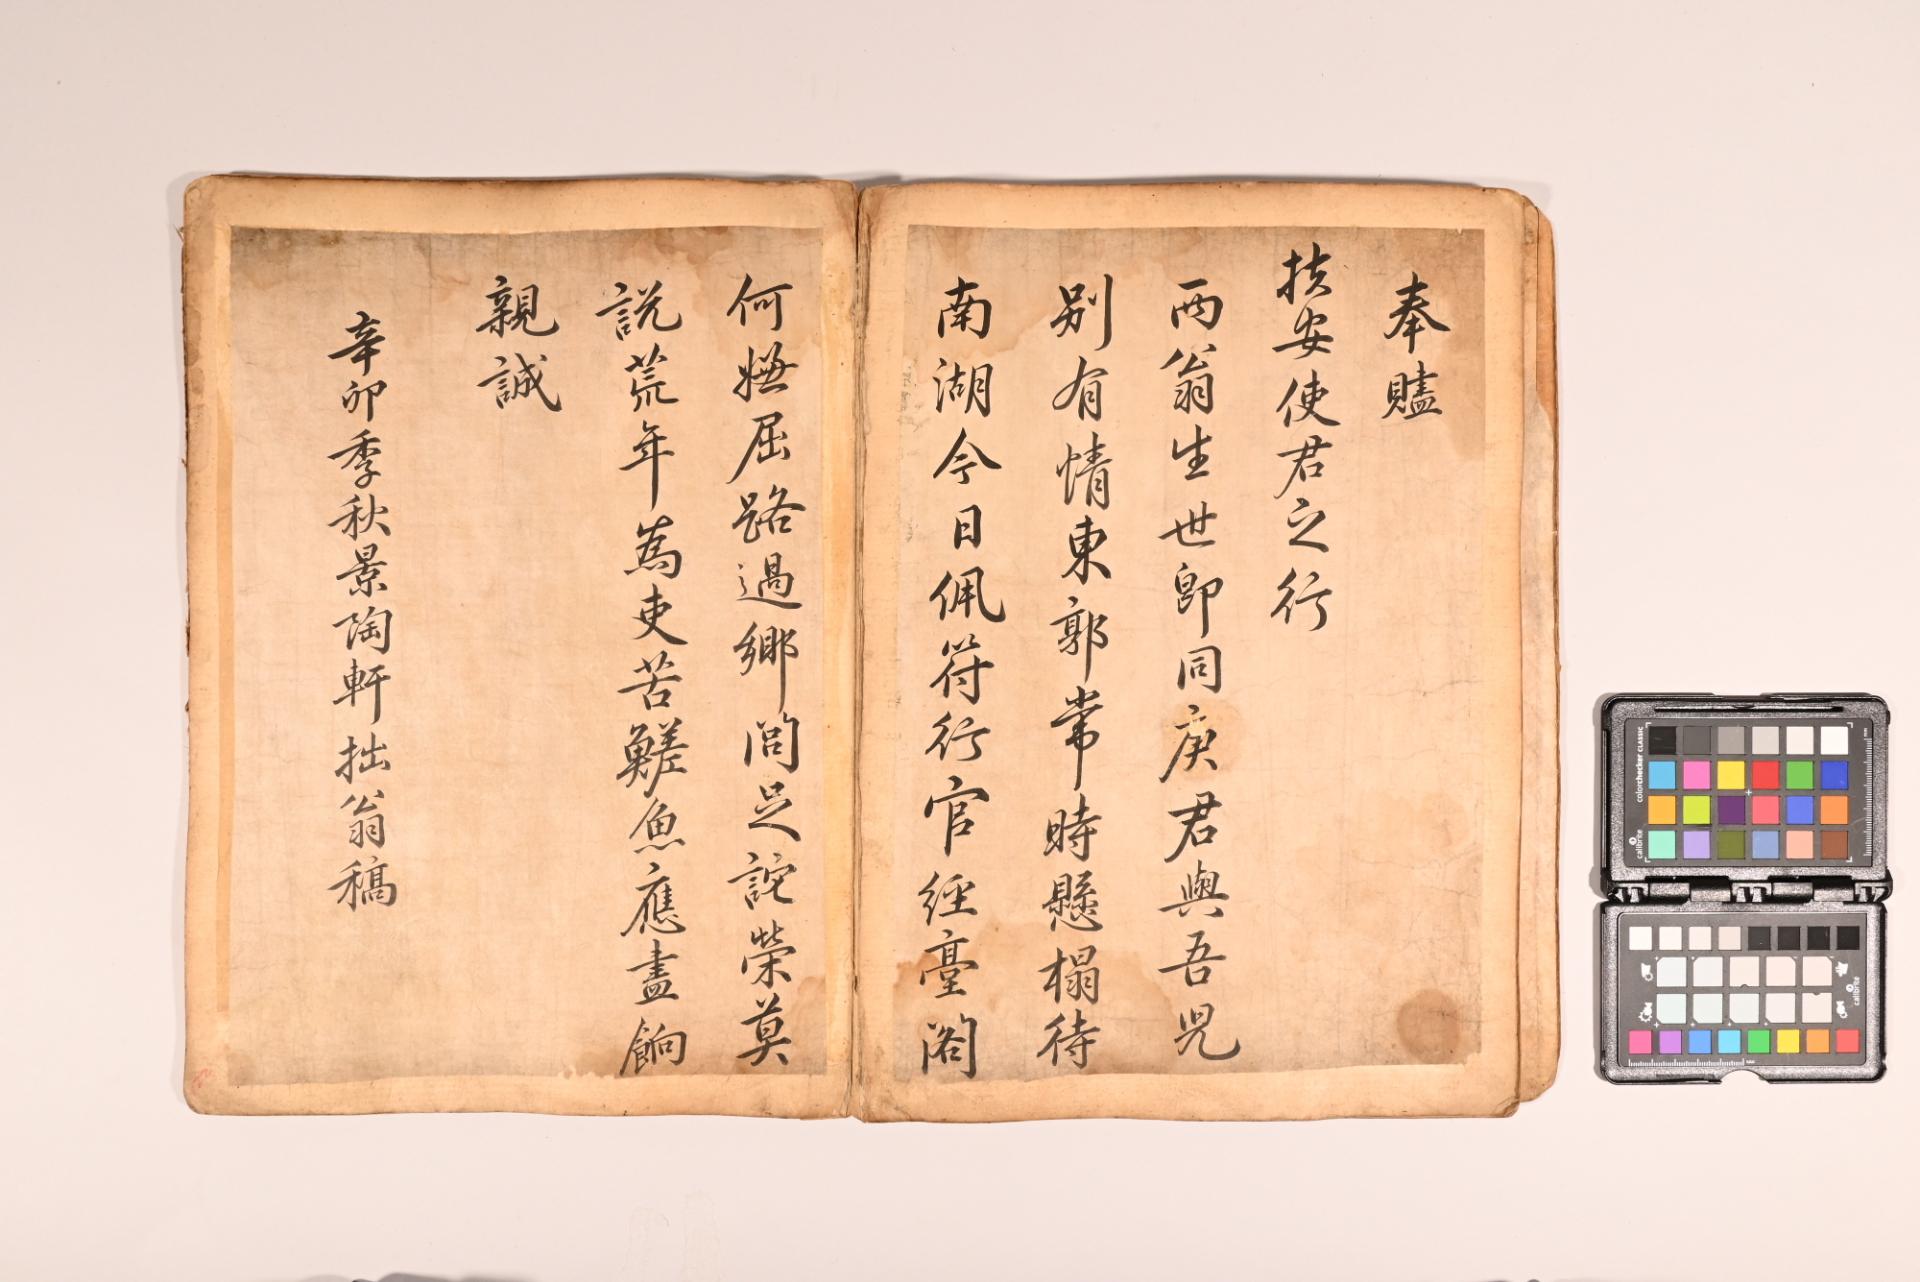 奉贐
扶安使君之行
兩翁生世卽同庚君與吾兒
別有情東郭常時懸榻待
南湖今日佩符行官經臺閣
何嫌屈路過鄉閭足詑榮莫
說荒年為吏苦鯗魚應盡餉
親誠
辛卯季秋景陶軒拙翁稿
colorchecker CLASSIC
calibrite
calibrite